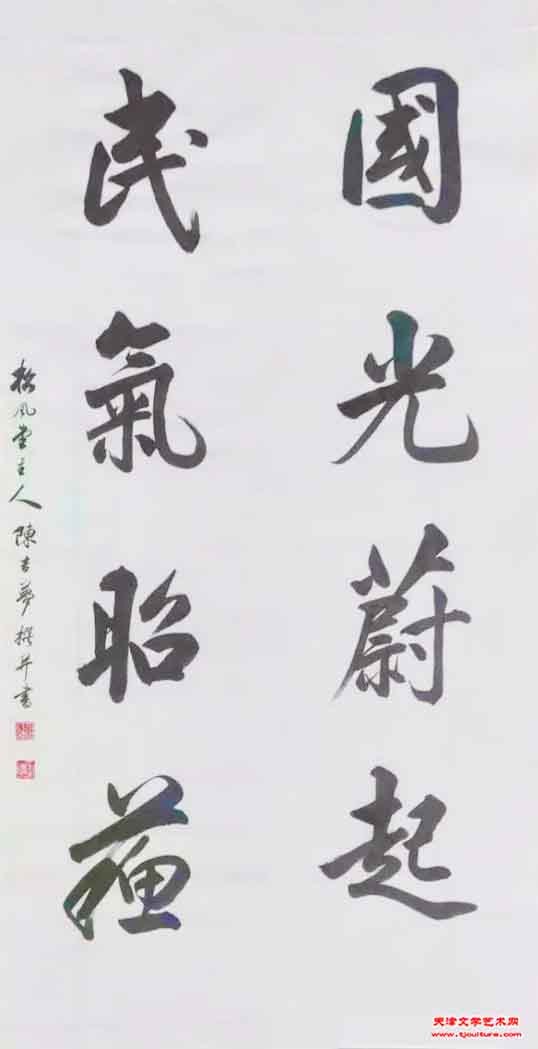 國光蔚起
民氣昭蘇
松風堂主人陳吉夢撰并書
天津文学艺术网
www.tjculture.com